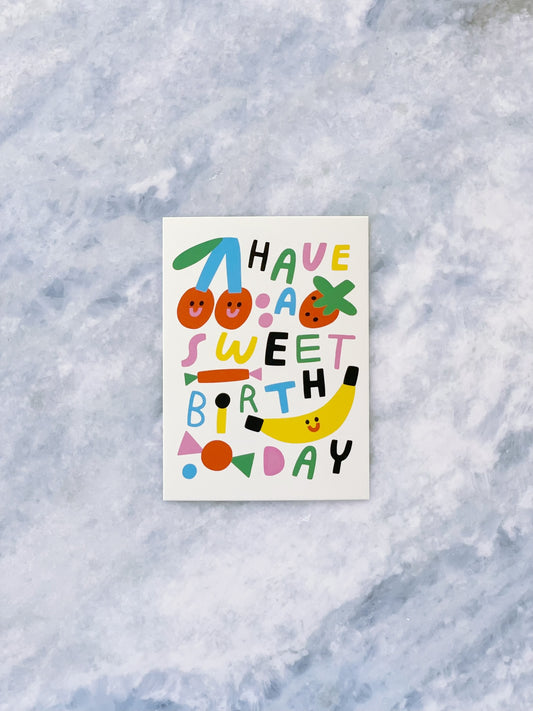 HAVE
A
SWEET
BIRTH
DAY